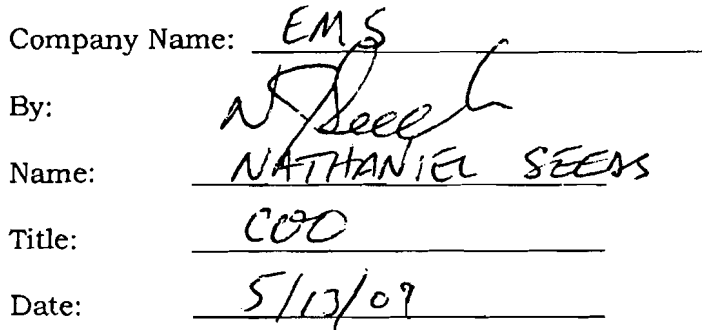 Company Name: EMS
By: N Seeds
Name: NATHANIEL SEEDS
Title: COO
Date: 5/13/09